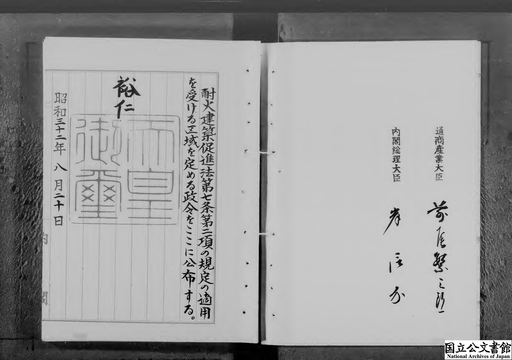 耐火建築促進法第七条第二項の規定の適用
を受ける区域を定める政令をここに公布する。
裕仁
天皇御璽
昭和三十二年八月二十日
内閣
通商産業大臣
前尾繁三郎
内閣総理大臣
岸信介
国立公文書館
National Archives of Japan